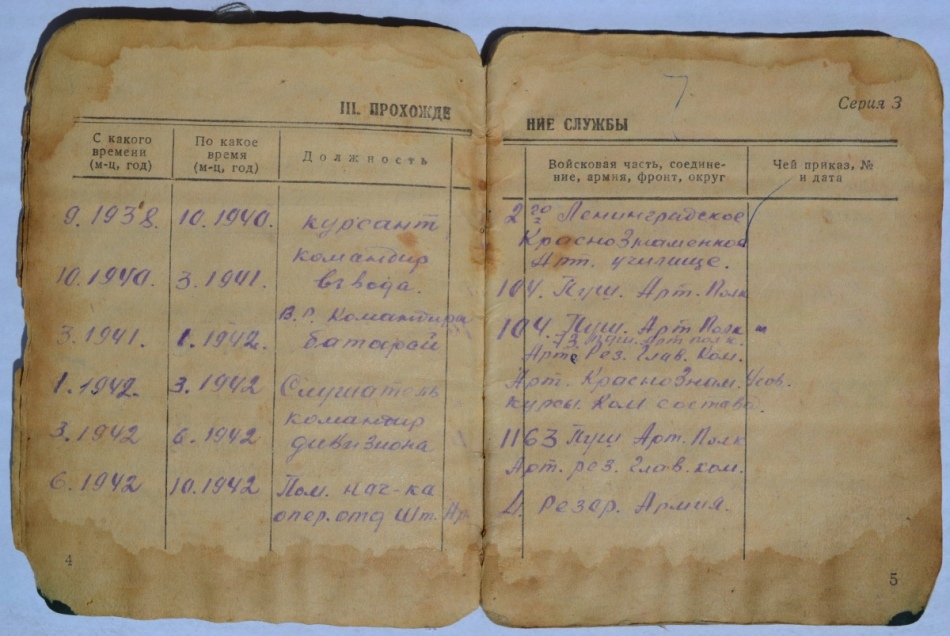 7.
Серия 3
III. ПРОХОЖДЕ
НИЕ СЛУЖБЫ
С какого
времени
(м-ц, год)
По какое
время
(м-ц, год)
Должность
Войсковая часть, соедине-
ние, армия, фронт, округ
Чей приказ, №
и дата
9.1938. 10.1940. курсант
2го Ленинградское
Краснознаменное
Арт. училище.
10.1940. 3.1941. командир
взвода.
104. Пуш. Арт. Полк
3.1941. 1.1942. В.р. Командира
батареи
104 Пуш. Арт Полк
73 Пуш. Арт полк.
Арт. Рез. Глав. Ком.
1.1942. 3.1942 Слушатель
Арт. Краснознам. Усов.
курсы. Ком состава.
3.1942 6.1942 командир
дивизиона
1163 Пуш Арт. Полк
Арт. рез. Глав. ком.
6.1942 10.1942 Пом. нач-ка
опер.отд Шт. Ар.
Резер. Армия.
4
5